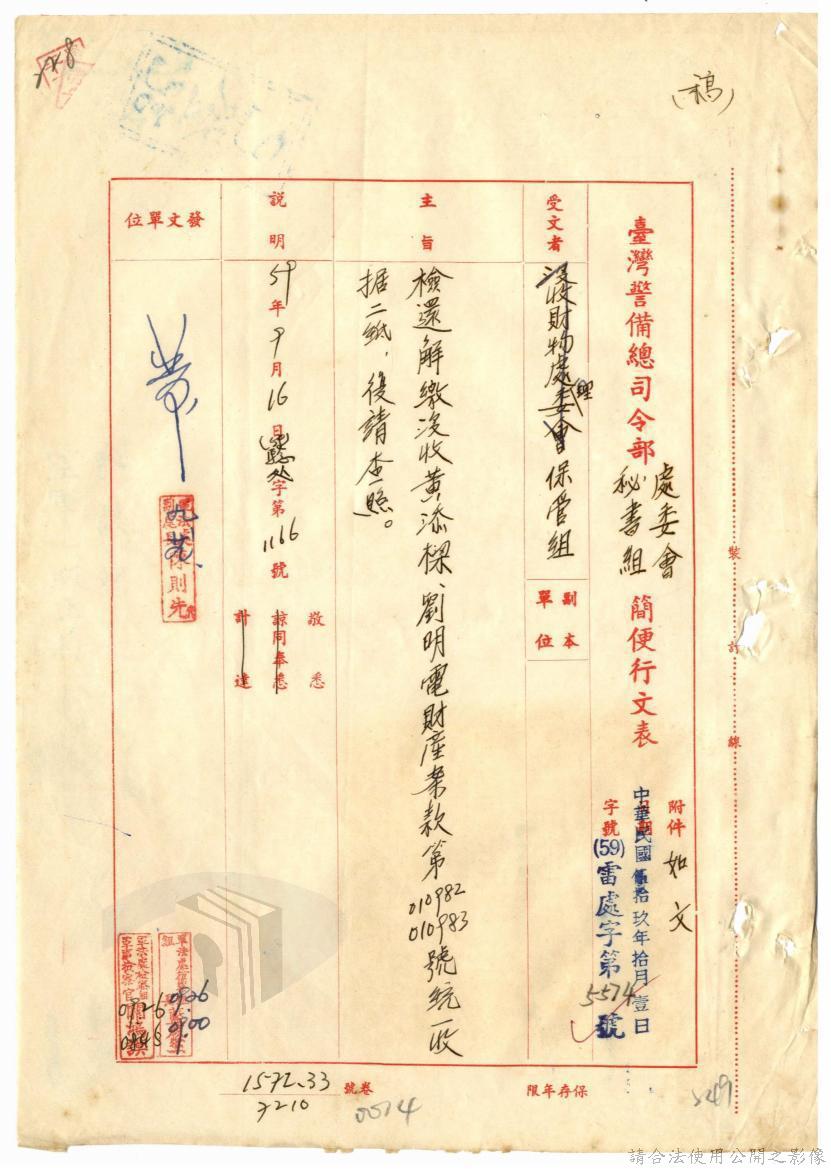 (稿)
臺灣警備總司令部
處委會
秘書組
簡便行文表
附件
如文
日期
中華民國伍拾玖年拾月壹日
字號
(59)雷處字第5574號
受文者
沒收財物處理委會保管組
副本
單位
主旨
檢還解繳沒收黃添樑、劉明電財產案款第010982
010983號統一收
据二紙,復請查照。
說明
59年9月16日
字第1166號
敬悉
諒同奉悉
計達
發文單位
九 茂
徐則先
0926
0900
0926
0848
裝訂線
保存年限
卷號
1572.33
7210
0074
549
請合法使用公開之影像